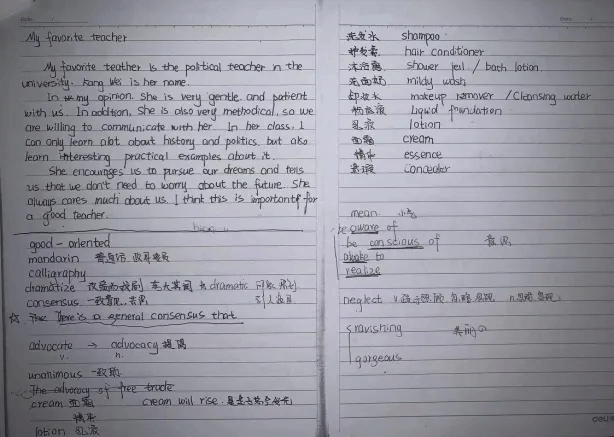 My favorite teacher
My favorite teather is the political teacher in the
university. Kang Wei is her name.
In my opinion. She is very gentle. and patient
with us. In addition, She is also very methodical, so we
are willing to communicate with her. In her class, I
can only learn alot about history and politics, but also
learn interesting practical examples about it.
She encourages us to pursue our dreams and tells
us that we don't need to worry about the future. She
always cares much about us. I think this is important for
a good teacher.
good-oriented
mandarin 普通话
calligraphy
dramatize 改编为戏剧 dramatic
consensus 一致意见, 共识
☆ The There is a general consensus that
advocate → advocacy 提倡
v. n.
unanimous 一致的
The advocacy of free trade
cream 面霜 cream will rise.
精华
lotion 乳液
洗发水 shampoo
护发素 hair conditioner
沐浴露 shower jell / bath lotion
洗面奶 mildy wash
卸妆水 makeup remover / Cleansing water
粉底液 Liquid foundation
乳液 lotion
面霜 cream
精华 essence
遮瑕 concealer
mean 小气
be aware of
be conscious of 意识
awake to
realize
neglect v. 忽略忽视 n. 忽略忽视
ravishing 美丽的
gorgeous